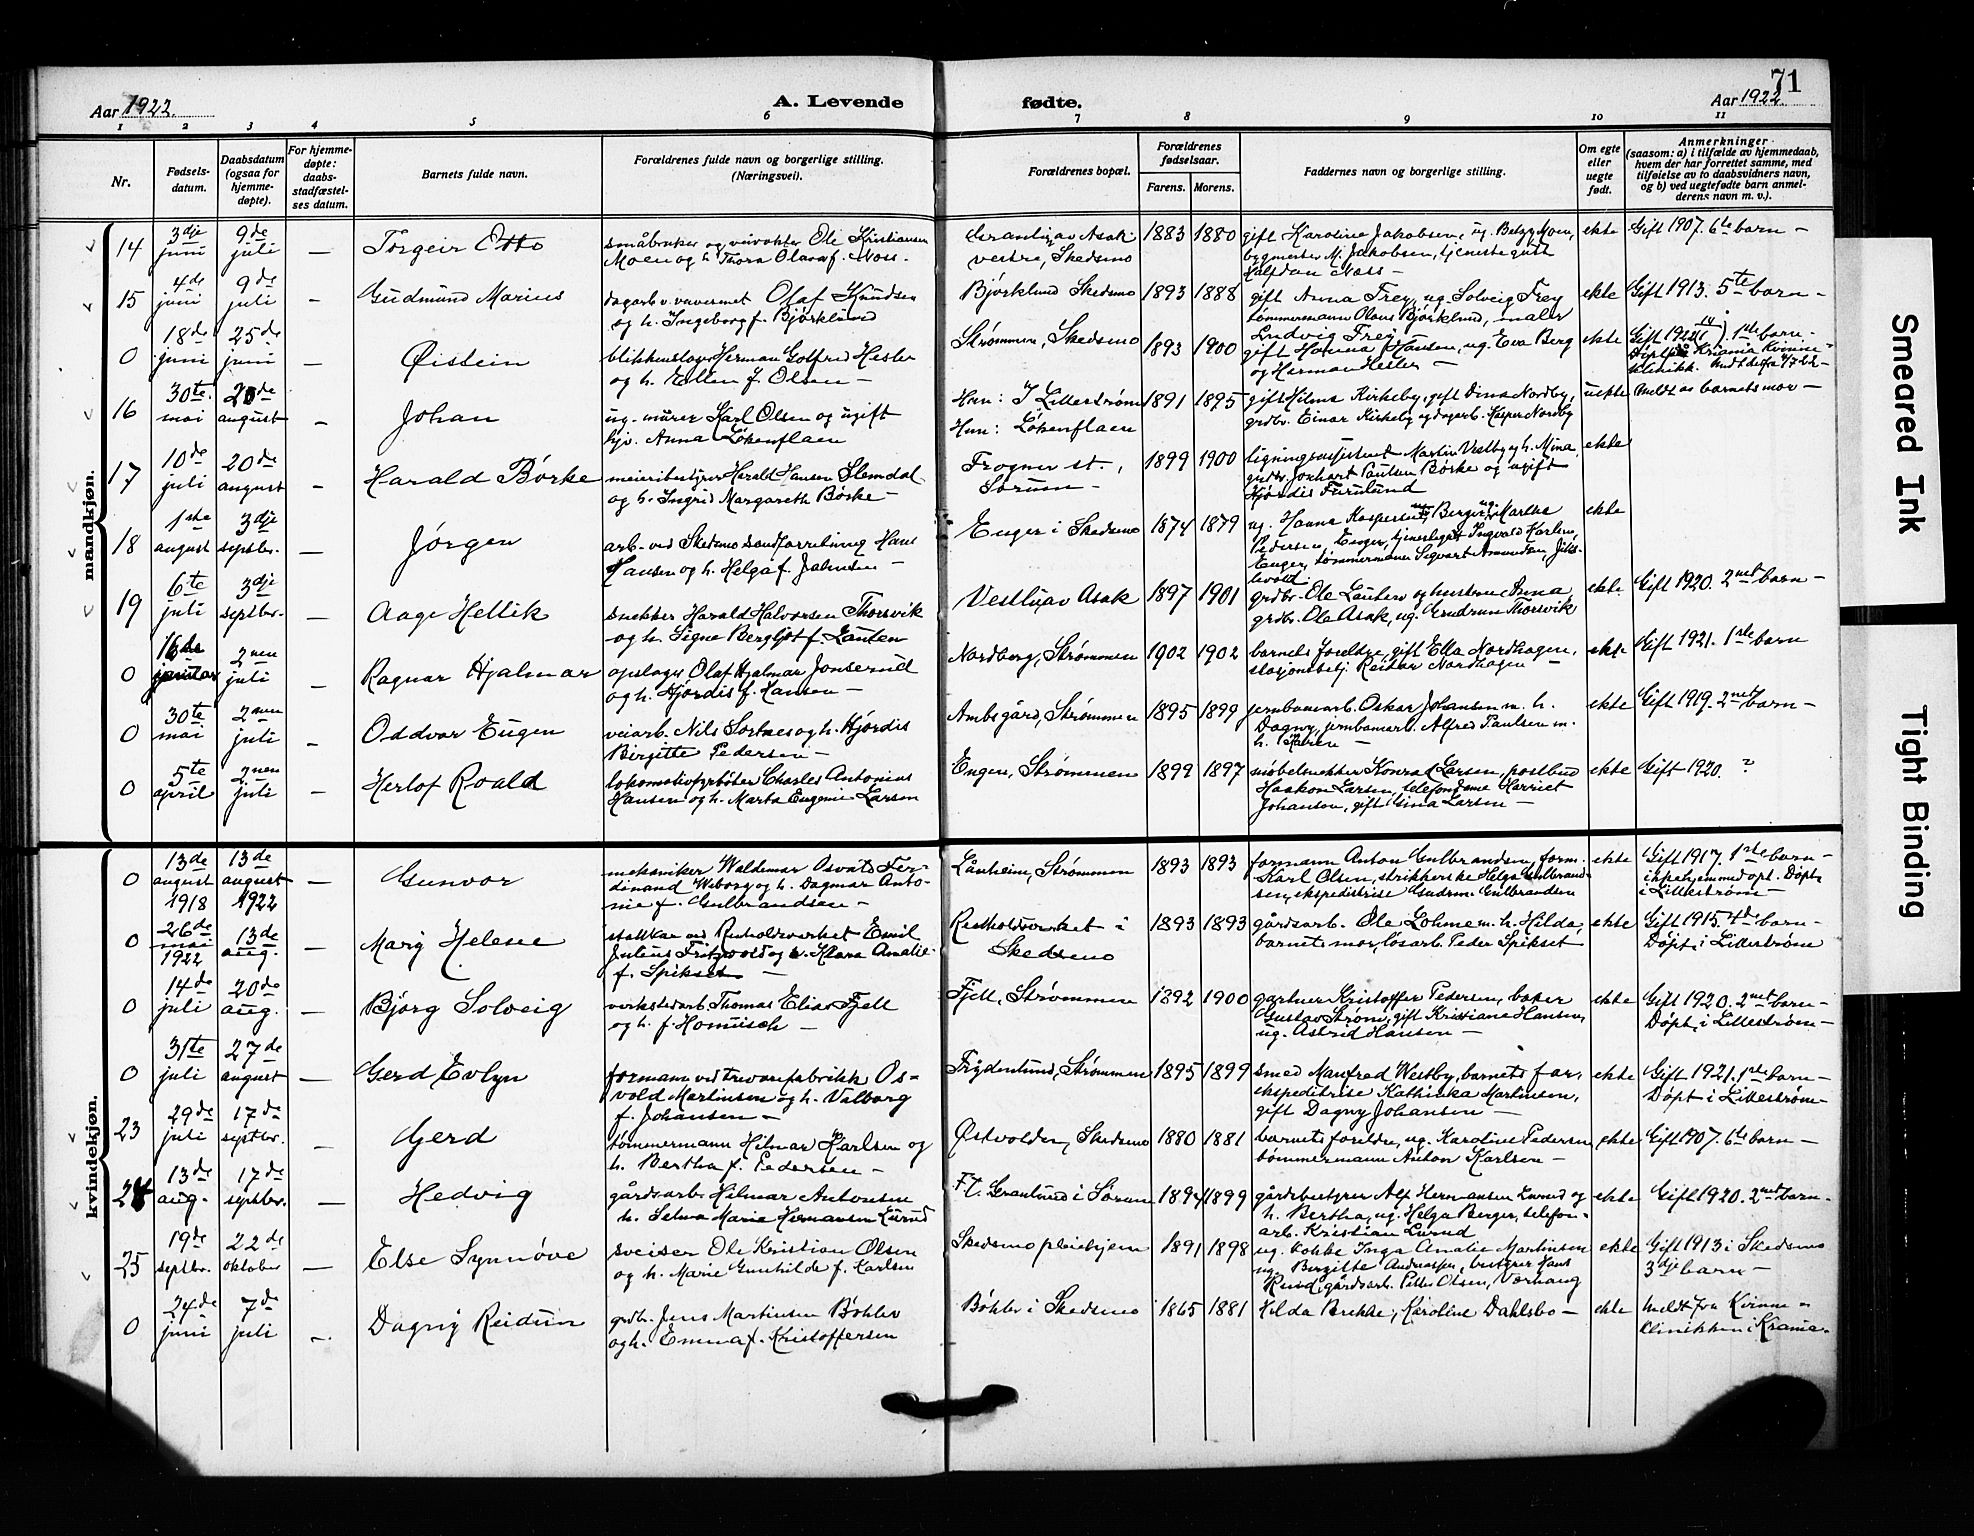 71
Aar 1922.
A. Levende fødte.
Aar 1922.
1 2 3 4 5 6 7 8 9 10 11
Nr.
Fødsels-datum.
Daabsdatum (ogsaa for hjemme-døpte).
For hjemme-døpte: daabs-stadfæstel-ses datum.
Barnets fulde navn.
Forældrenes fulde navn og borgerlige stilling. (Næringsvei).
Forældrenes bopæl.
Forældrenes fødselsaar.
Farens. Morens.
Faddernes navn og borgerlige stilling.
Om egte eller uegte født.
Anmerkninger
(saasom: a) i tilfælde av hjemmedaab,
hvem der har forrettet samme, med
tilføielse av to daabsvidners navn,
og b) ved uegtefødte barn anmel-
derens navn m. v.).
mandkjøn.
14 3dje juni 9de juli — Torgeir Otto
småbruker og veivokter Ole Kristiansen
Moen og h. Thora Olava f. Moss.
Granli av Asak
vestre, Skedsmo
1883 1880
gift Karoline Jakobsen, ug. Moen,
bygmester M. Jakobsen, tjenestegutt
Halfdan Moss —
ekte Gift 1907. 6te barn —
15 4de juni 9de juli — Gudmund Marius
Olaf Knudsen
og h. Ingeborg f. Bjørklund
Bjørklund Skedsmo 1893 1888
gift Anna Frey, ug. Solveig Frey
tømmermann Olaus Bjørklund, maler
Ludvig Frey
ekte Gift 1913. 5te barn —
0 18de juni 25de juni — Øistein
blikkenslager Herman Golfred Hesler
og h. Ellen f. Olsen —
Strømmen, Skedsmo 1893 1900
gift Hanna Hansen, ug. Eva Berg
og Herman Hesler —
ekte 1ste barn.
16 30te mai 20de august — Johan
ug. murer Karl Olsen og ugift
Anna Løkenflaen
Han: I Lillestrøm
Hun: Løkenflaen
1891 1895
gift Hilma Kirkeby, gift Dina Nordby,
grdbr. Einar Kirkeby og dagarb. Kasper Nordby
uekte Meldt av barnets mor —
17 10de juli 20de august — Harald Børke
meieribestyrer Harald Hansen Slemdal
og h. Ingrid Margareth Børke —
Frogner st.,
Sørum —
1899 1900
Martin Vestby og h. Mina,
Paulsen Børke og ugift
Hjørdis Furulund
ekte
18 1ste august 3dje septbr. — Jørgen
arb. ved Skedsmo Hans
Hansen og h. Helga f. Johnsen —
Enger i Skedsmo 1874 1879
ug. Hanna Kaspersen, Martha
Pedersen Enger, Ingvald Karlsen,
Enger, tømmermann Sigvart Amundsen,
ekte
19 6te juli 3dje septbr. — Aage Hellik
snekker Harald Halvorsen Thorsvik
og h. Signe Bergljot f. Lauten
Vestly av Asak 1897 1901
grdbr. Ole Lauten og hustru Anna,
grdbr. Ole Asak, ug. Gudrun Thorsvik
ekte Gift 1920. 2net barn —
0 16de januar 2nen juli — Ragnar Hjalmar
Olaf Hjalmar Jonserud
og h. Hjørdis f. Hansen —
Nordberg, Strømmen 1902 1902
barnets foreldre, gift Ella Nordhagen,
stasjonsbetj. Reidar Nordhagen —
ekte Gift 1921. 1ste barn
0 30te mai 2nen juli — Oddvar Eugen
veiarb. Nils Sortnes og h. Hjørdis
Birgitte Pedersen —
Ambsgård, Strømmen 1895 1899
jernbanearb. Oskar Johansen m. h.
Dagny, jernbanearb. Alfred Paulsen m.
h. Karen —
ekte Gift 1919. 2net barn —
0 5te april 2nen juli — Herlof Roald
lokomotivfyrbøter Charles Antonius
Hansen og h. Marta Eugenie Larsen
Engen, Strømmen 1899 1897
møbelsnekker Konrad Larsen, postbud
Haakon Larsen, telefondame Harriet
Johansen, gift Gina Larsen —
ekte Gift 1920. ?
kvindekjøn.
0 13de august 1918 13de august 1922 — Gunvor
mekaniker Waldemar Osvald Fer-
dinand Wiborg og h. Dagmar Anto-
nie f. Gulbrandsen —
Lånheim, Strømmen 1893 1893
formann Anton Gulbrandsen, form.
Karl Olsen, strikkerske Helga Gulbrand-
sen, ekspeditrise Gudrun Gulbrandsen
ekte Gift 1917. 1ste barn —
ikke hjemmedøpt. Døpt
i Lillestrøm —
0 26de mai 1922 13de aug. — Marig Helene
stallkar ved Renholdsverket Emil
Julius og h. Klara Amalie
f. Spikset —
Renholdsverket i
Skedsmo
1893 1893
gårdsarb. Ole Lohme m. h. Hilda,
barnets mor, løsarb. Peder Spikset
ekte Gift 1915. 4de barn —
Døpt i Lillestrøm
0 14de juli 20de aug. — Bjørg Solveig
verkstedarb. Thomas Elias Fjell
og h. f. Homuisch —
Fjell, Strømmen 1892 1900
gartner Kristoffer Pedersen, baker
Gustav Strøm, gift Kristiane Hansen,
ug. Astrid Hansen —
ekte Gift 1920. 2net barn —
Døpt i Lillestrøm —
0 31te juli 27de august — Gerd Evlyn
formann ved trevarefabrikk Os-
vold Martinsen og h. Valborg
f. Johansen —
Frydenlund, Strømmen 1895 1899
smed Manfred Westby, barnets far,
ekspeditrise Kathinka Martinsen,
gift Dagny Johansen —
ekte Gift 1921. 1ste barn —
Døpt i Lillestrøm —
23 29de juli 17de septbr. — Gerd
tømmermann Hilmar Karlsen og
h. Bertha f. Pedersen —
Østvolden, Skedsmo 1880 1881
barnets foreldre, ug. Karoline Pedersen
tømmermann Anton Karlsen —
ekte Gift 1907. 6te barn —
24 13de aug. 17de septbr. — Hedvig
gårdsarb. Hilmar Antonsen
h. Selma Marie Hermansen Lurud
Fl. Granlund i Sørum 1894 1899
gårdsbestyrer Alf Hermansen Lurud og
h. Bertha, ug. Helga Berger, telefon-
arb. Kristian Lurud
ekte Gift 1920. 2net barn.
25 19de septbr. 22de oktober — Else Synnøve
sveiser Ole Kristian Olsen
og h. Marie Gunhilde f. Karlsen
Skedsmo pleiehjem 1891 1898
ug. kokke Inga Amalie Martinsen
ug. Birgitte Andreassen, bestyrer Hans
Ruud, gårdsarb. Petter Olsen, Vornang
ekte Gift 1913 i Skedsmo
3dje barn —
0 24de juni 7de juli — Dagny Reidun
grdbr. Jens Martinsen Bøhler
og h. Emma f. Kristoffersen
Bøhler i Skedsmo 1865 1881
Hilda Brekke, Karoline Dahlsbo —
ekte Meldt fra Kvinne-
klinikken i Krania.
Smeared Ink
Tight Binding